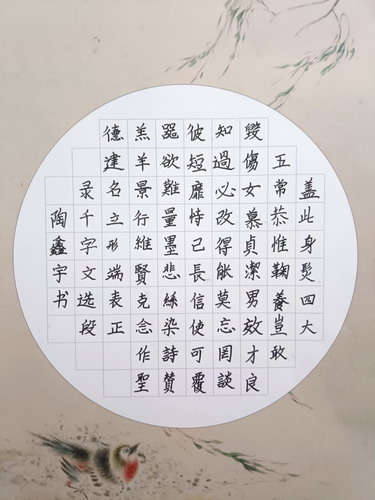 盖此身髮四大
五常恭惟鞠養豈敢
毀傷女慕貞潔男效才良
知過必改得能莫忘罔談
彼短靡恃己長信使可覆
器欲難量墨悲絲染詩贊
羔羊景行維賢克念作聖
德建名立形端表正
录千字文选段
陶鑫宇书